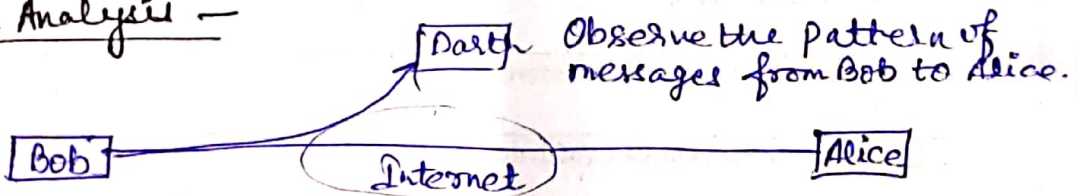 Analysis —
Darth Observe the pattern of
messages from Bob to Alice.
Bob
Internet
Alice